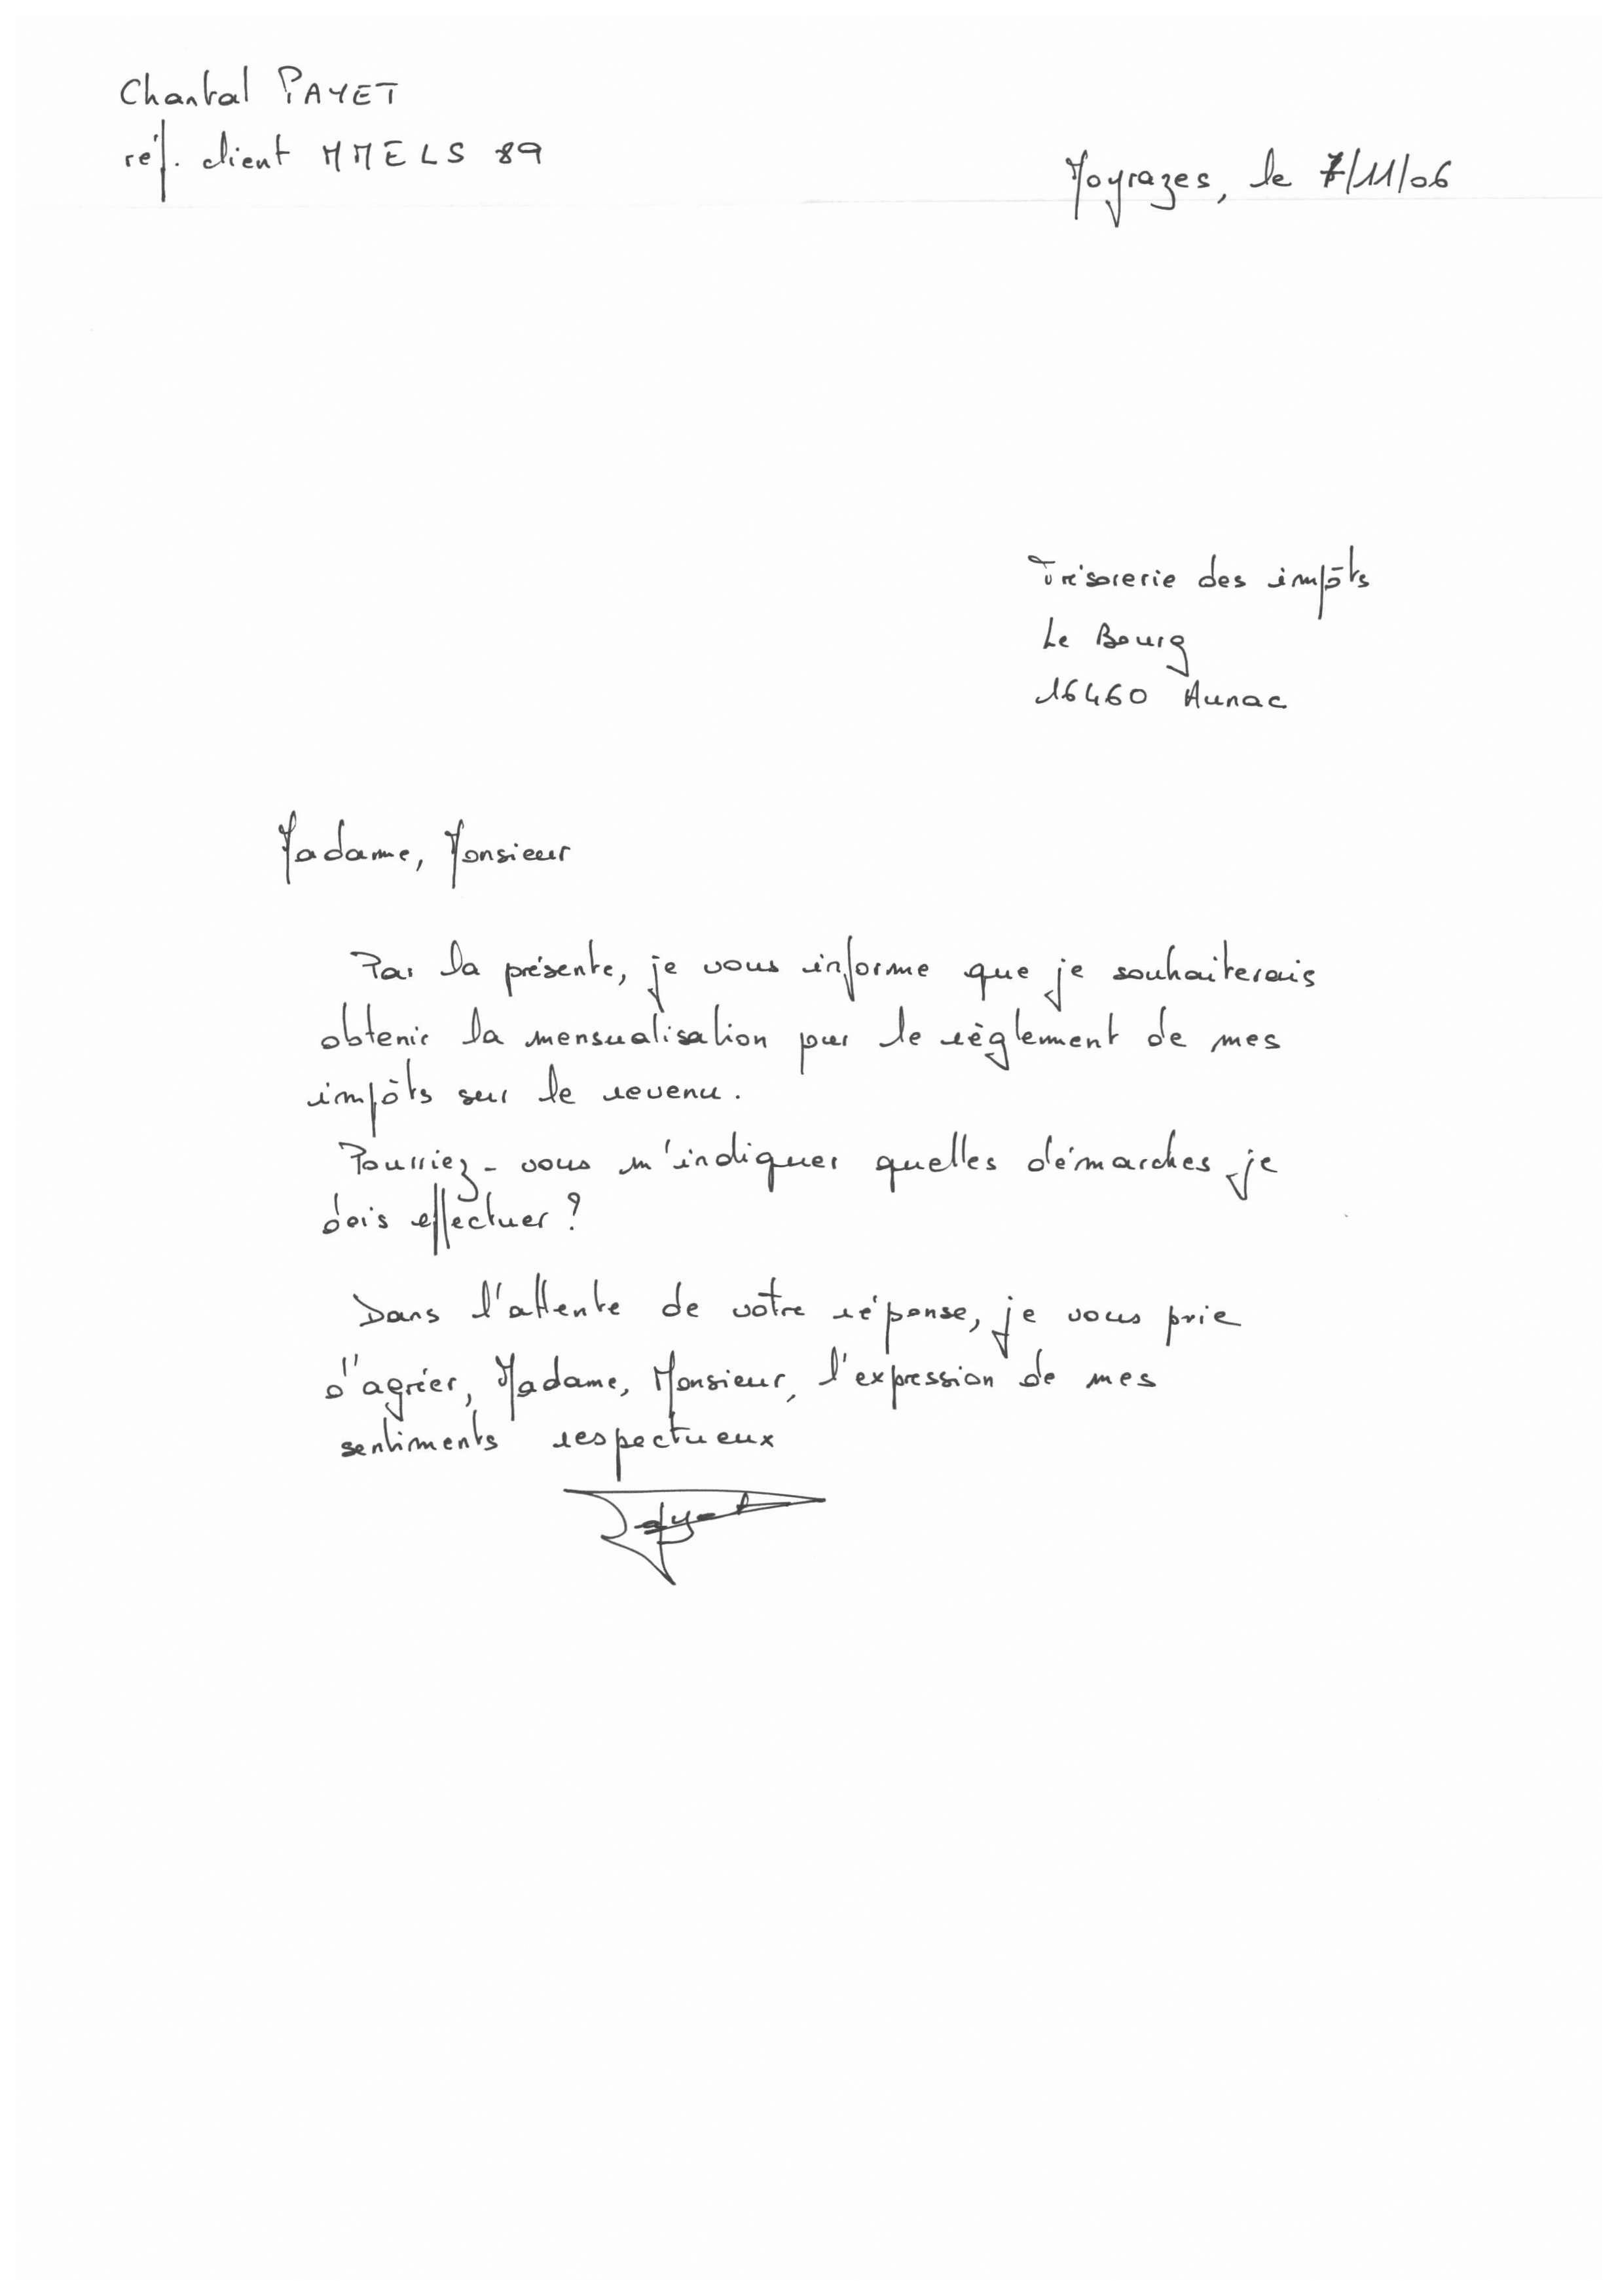 Chantal PAYET
réf. client MMELS 89
Moyrazes, le 7/11/06
Trésorerie des impôts
Le Bourg
16460 Aunac
Madame, Monsieur
Par la présente, je vous informe que je souhaiterais
obtenir la mensualisation pour le règlement de mes
impôts sur le revenu.
Pourriez-vous m'indiquer quelles démarches je
dois effectuer ?
Dans l'attente de votre réponse, je vous prie
d'agréer, Madame, Monsieur, l'expression de mes
sentiments respectueux
Payet